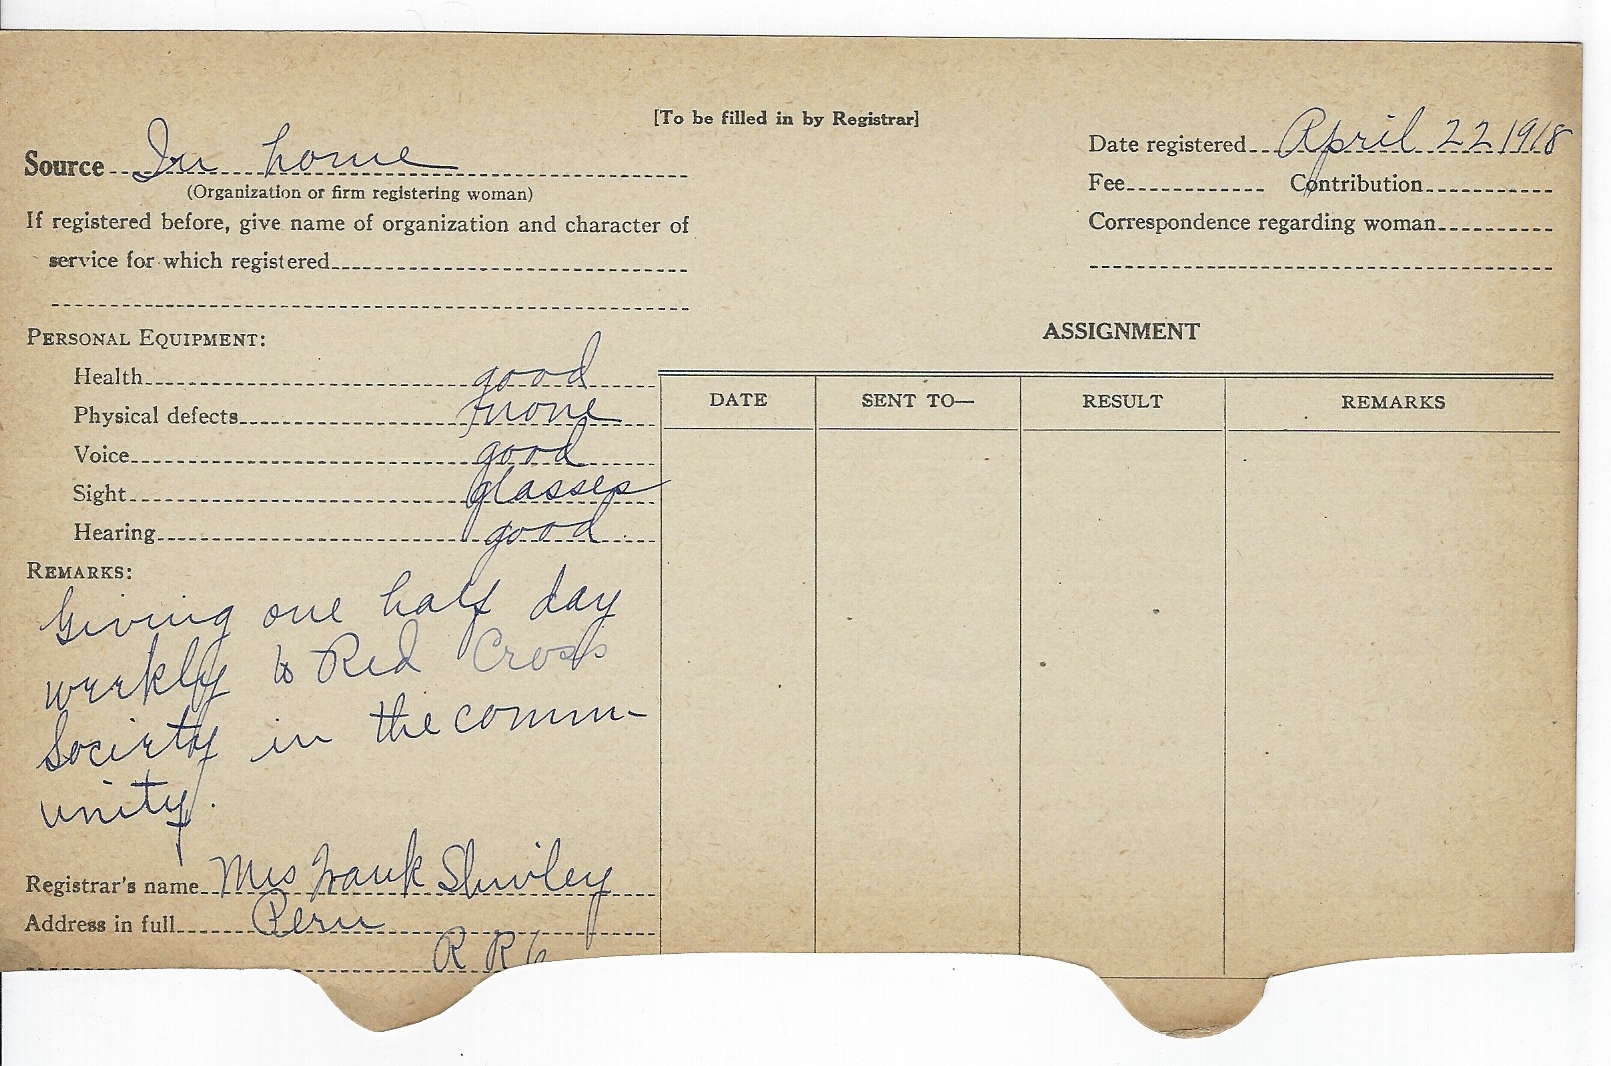 [To be filled in by Registrar]
Source In home
(Organization or firm registering woman)
If registered before, give name of organization and character of
service for which registered
Date registered April 22 1918
Fee Contribution
Correspondence regarding woman
PERSONAL EQUIPMENT:
Health good
Physical defects none
Voice good
Sight glasses
Hearing good
REMARKS:
Giving one half day
weekly to Red Cross
Society in the comm-
unity.
Registrar's name Mrs Frank Shivley
Address in full Peru
R R 6
ASSIGNMENT
DATE SENT TO— RESULT REMARKS